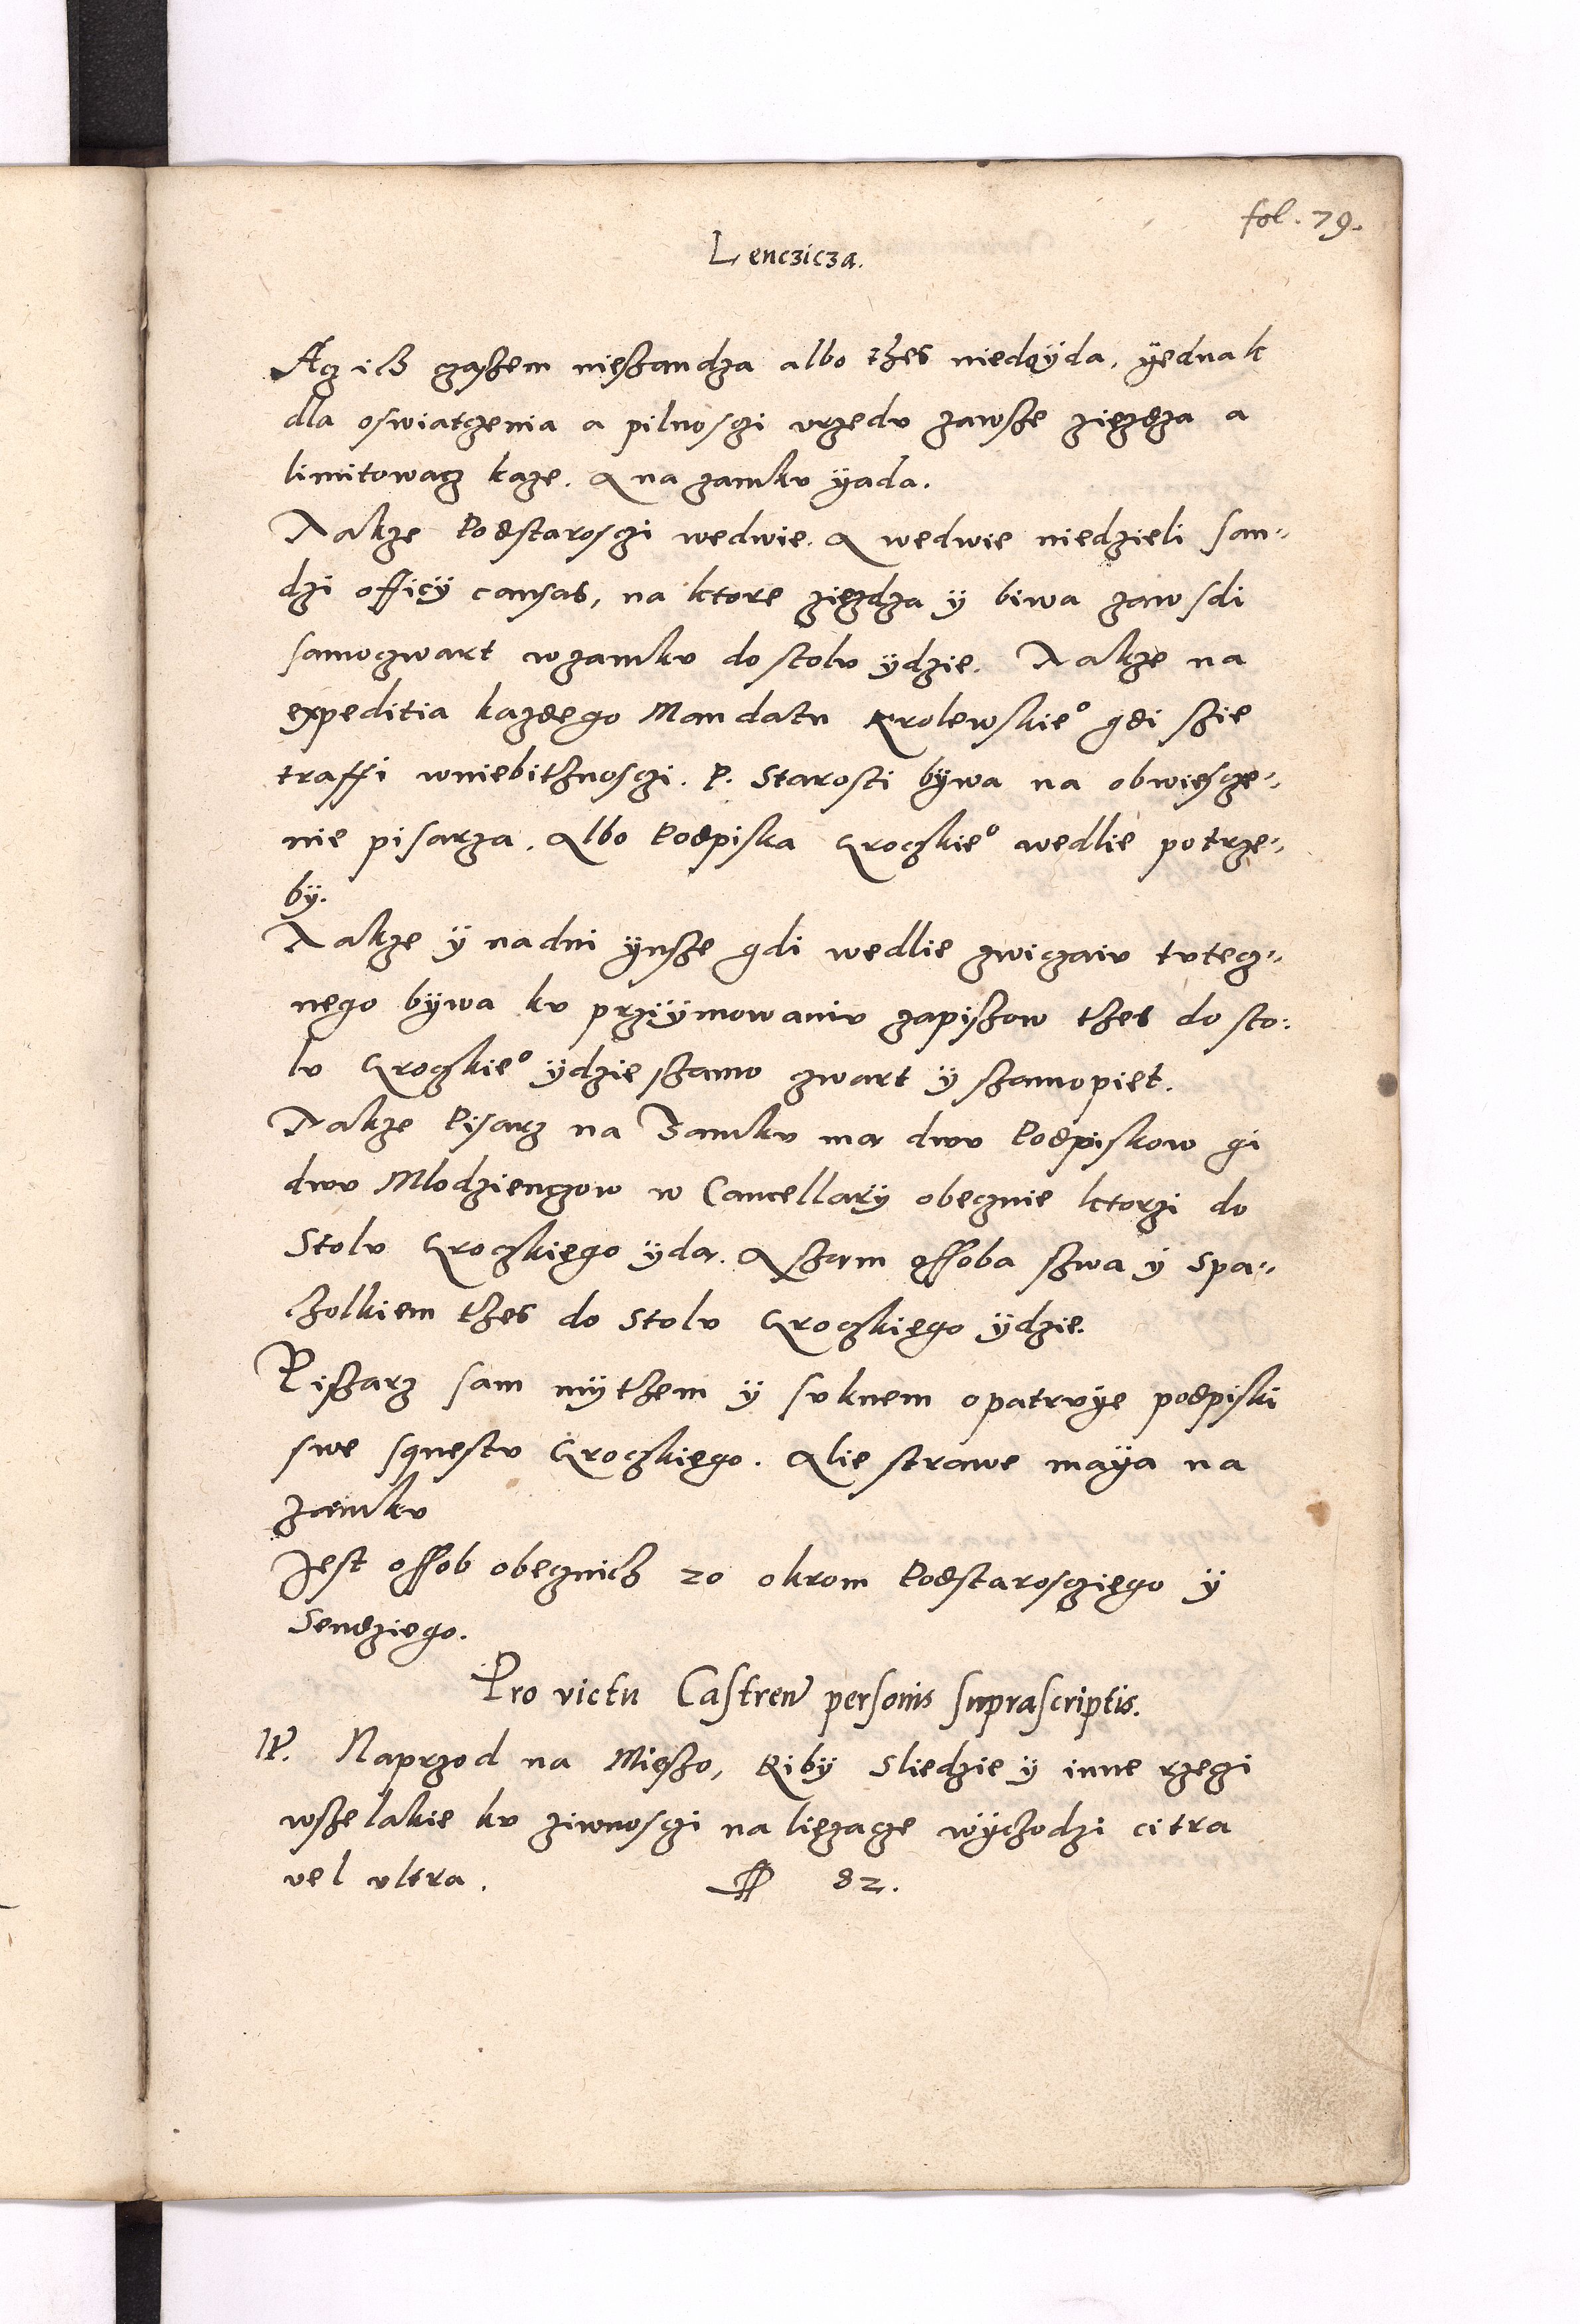 fol. 79.
Lenczicza.
Acz ich czaszem nieszandza albo thes niedoÿda, ÿednak
dla oswiatczenia a pilnosczi vrzedv zawsze ziezdza a
limitowacz kaze. A na zamkv ÿada.
Takze Podstarosczi wedwie. A wedwie niedzieli san-
dzi officÿ causas, na ktore ziezdza ÿ biwa zawsdi
samoczwart wzamkv do stolv ÿdzie. Takze na
expeditia kazdego Mandatu Krolewskie° gdi szie
traffi wniebithnosczi. P. Starosti bÿwa na obwiescze-
nie pisarza. Albo Podpiska Groczkie° wedlie potrze-
bÿ.
Takze ÿ nadni ÿnsze gdi wedlie zwiczaiv tvtecz-
nego bÿwa kv przÿÿmowaniv zapiszow thes do sto-
lv Groczkie° ÿdzie szamo czwart ÿ szamopiet.
Takze Pisarz na Zamkv ma dwv Podpiskow czi
dwv Mlodzienczow w Cancellarÿ obecznie ktorzi do
Stolv Groczkiego ÿda. A szam ossoba szwa ÿ Spa-
cholkiem thes do Stolv Groczkiego ÿdzie.
Piszarz sam mÿthem ÿ svknem opatrvÿe podpiski
swe sqnestv Groczkiego. Alie strawe maÿa na
zamkv
Jest ossob obecznich 20 okrom Podstarosciego ÿ
Sendziego.
Pro victu Castren personis suprascriptis.
Naprzod na Mieszo, Riby Sliedzie ÿ inne rzeczi
wszelakie kv ziwnosczi na liezacze wÿchodzi citra
vel vltra. 82.